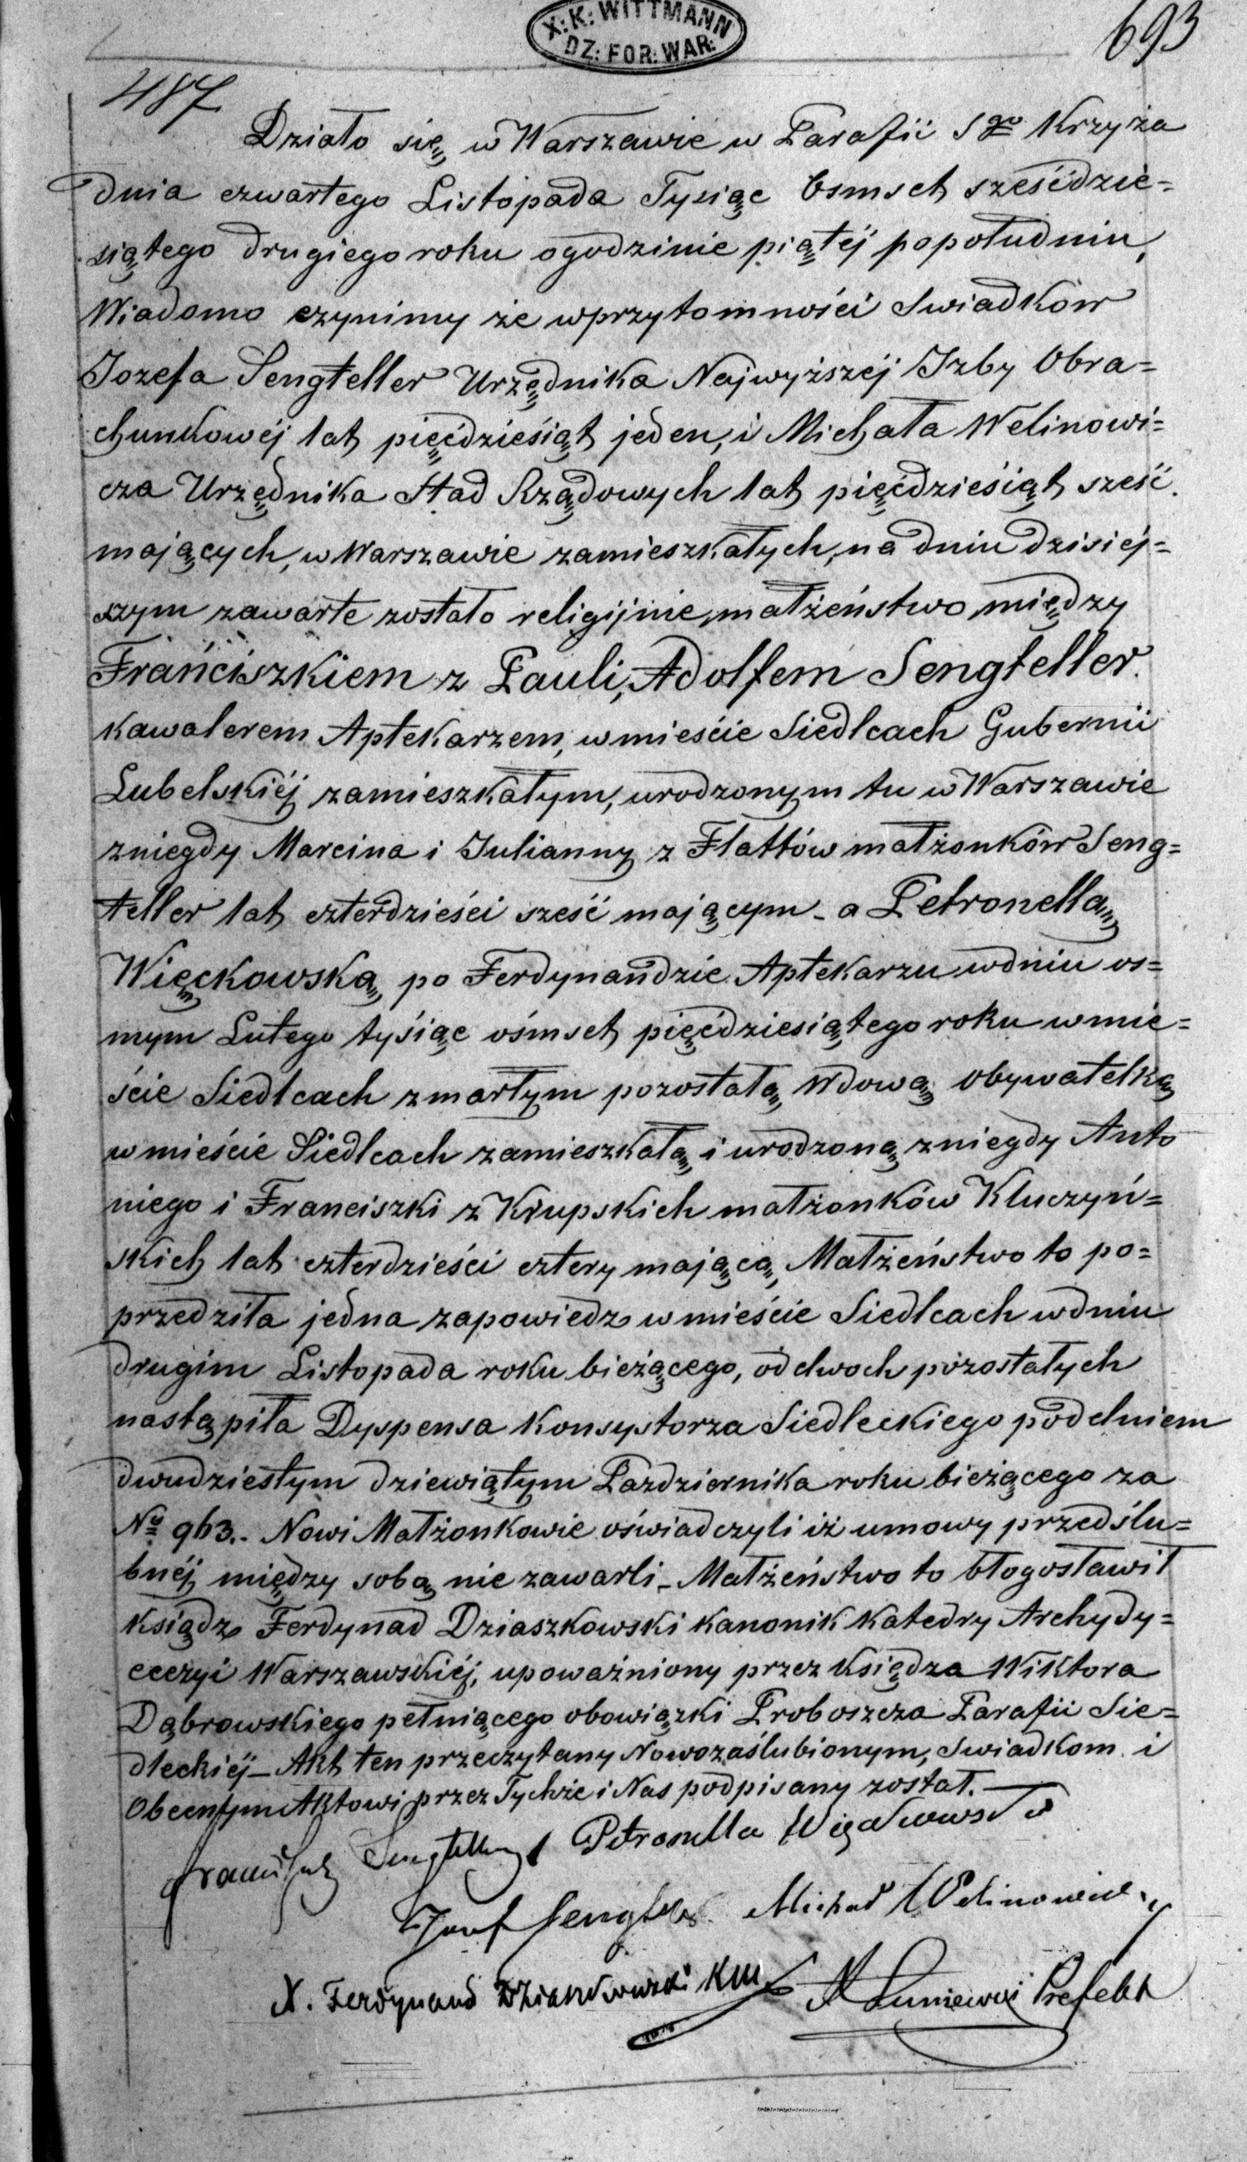 X: K: WITTMANN
DZ: FOR: WAR:
693
487
Działo się w Warszawie w Parafii Sgo Krzyża
dnia czwartego Listopada Tysiąc Osmset sześćdzie=
siątego drugiego roku ogodzinie piątéj popołudniu,
Wiadomo czynimy że wprzytomności Swiadków
Jozefa Sengteller Urzędnika Najwyższéj Izby Obra=
chunkowéj lat pięćdziesiąt jeden, i Michała Welinowi=
cza Urzędnika Stad Rządowych lat pięćdziesiąt sześć
mających, w Warszawie zamieszkałych, na dniu dzisiéj=
szym zawarte zostało religijnie małżeństwo między
Franciszkiem z Pauli, Adolfem Sengteller
kawalerem Aptekarzem, wmieście Siedlcach Gubernii
Lubelskiéj zamieszkałym, urodzonym tu w Warszawie
zniegdy Marcina i Julianny z Flattów małżonków Seng=
teller lat czterdzieści sześć mającym - a Petronellą
Więckowską po Ferdynandzie Aptekarzu wdniu os=
mym Lutego tysiąc ośmset pięćdziesiątego roku wmie=
ście Siedlcach zmarłym pozostałą Wdową obywatelką
wmieście Siedlcach zamieszkałą i urodzoną zniegdy Anto
niego i Franciszki z Krupskich małżonków Kluczyń=
skich lat czterdzieści cztery mającą, Małżeństwo to po=
przedziła jedna zapowiedz wmieście Siedlcach wdniu
drugim Listopada roku bieżącego, od dwoch pozostałych
nastąpiła Dyspensa Konsystorza Siedleckiego pod dniem
dwudziestym dziewiątym Pazdziernika roku bieżącego za
No 963.- Nowi Małżonkowie oświadczyli iż umowy przedślu=
bnéj między sobą nie zawarli - Małżeństwo to błogosławił
ksiądz Ferdynad Dziaszkowski kanonik Katedry Archydy=
ecezyi Warszawskiéj, upoważniony przez Księdza Wiktora
Dąbrowskiego pełniącego obowiązki Proboszcza Parafii Sie=
dleckiéj - Akt ten przeczytany Nowozaślubionym, Swiadkom i
Obecnym Aktowi przez Tychże i Nas podpisany został.
Franciszek Sengteller Petronella Więckowska
Józef Sengteller Michał Welinowicz
X. Ferdynand Dziaszkowski KM
Prefekt